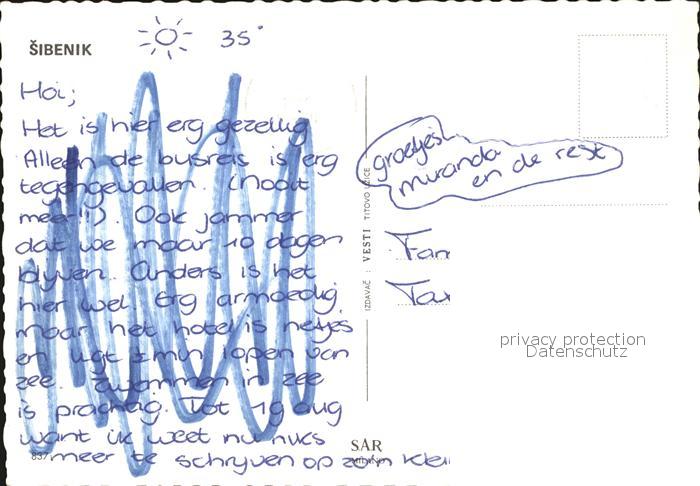 ŠIBENIK
35°
Hoi;
Het is hier erg gezellig
Alleen de busreis is erg
tegengevallen. (Nooit
meer!!). Ook jammer
dat we maar 10 dagen
blyven. Anders is het
hier wel erg armoedig
maar het hotel is netjes
en ligt ± min lopen van
zee. Zwemmen in zee
is prachtig. Tot 19 aug
want ik weet nu niks
837 meer te schryven op zo'n klei
groetjes!
miranda
en de rest
IZDAVAČ : VESTI TITOVO UŽICE
Fam
SAR
privacy protection
Datenschutz